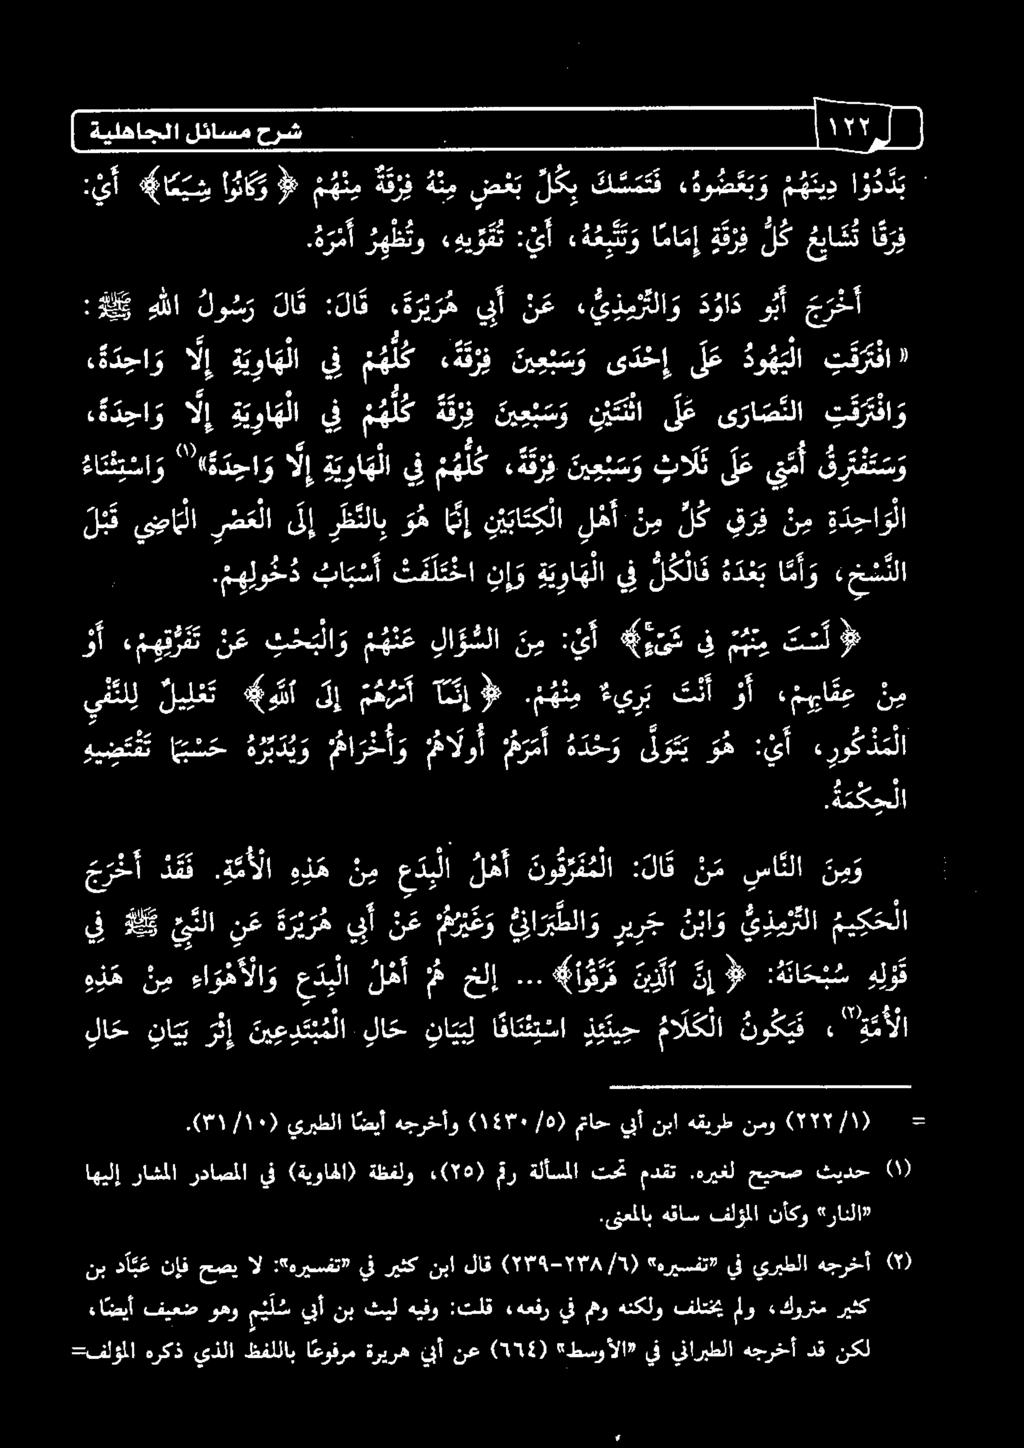 ١٢٢ شرح مسائل الجاهلية
بَدَّدُوْا دِينَهُمْ وَبَعَّضُوهُ، فَتَمَسَّكَ بِكُلِّ بَعْضٍ مِنْهُ فِرْقَةٌ مِنْهُمْ ﴿وَكَانُوا۟ شِيَعًا﴾ أَيْ:
فِرَقًا تُشَايِعُ كُلُّ فِرْقَةٍ إِمَامًا وَتَتَّبِعُهُ، أَيْ: تُقَوِّيهِ، وتُظْهِرُ أَمْرَهُ.
أَخْرَجَ أَبُو دَاوُدَ وَالتِّرْمِذِيُّ، عَنْ أَبِي هُرَيْرَةَ، قَالَ: قَالَ رَسُولُ اللهِ ﷺ:
«افْتَرَقَتِ الْيَهُودُ عَلَى إِحْدَى وَسَبْعِينَ فِرْقَةً، كُلُّهُمْ فِي الْهَاوِيَةِ إِلَّا وَاحِدَةً،
وَافْتَرَقَتِ النَّصَارَى عَلَى اثْنَتَيْنِ وَسَبْعِينَ فِرْقَةً كُلُّهُمْ فِي الْهَاوِيَةِ إِلَّا وَاحِدَةً،
وَسَتَفْتَرِقُ أُمَّتِي عَلَى ثَلَاثٍ وَسَبْعِينَ فِرْقَةً، كُلُّهُمْ فِي الْهَاوِيَةِ إِلَّا وَاحِدَةً»(١) وَاسْتِثْنَاءُ
الْوَاحِدَةِ مِنْ فِرَقِ كُلٍّ مِنْ أَهْلِ الْكِتَابَيْنِ إِنَّمَا هُوَ بِالنَّظَرِ إِلَى الْعَصْرِ الْمَاضِي قَبْلَ
النَّسْخِ، وَأَمَّا بَعْدَهُ فَالْكُلُّ فِي الْهَاوِيَةِ وَإِنِ اخْتَلَفَتْ أَسْبَابُ دُخُولِهِمْ.
﴿لَسْتَ مِنْهُمْ فِى شَىْءٍ﴾ أَيْ: مِنَ السُّؤَالِ عَنْهُمْ وَالْبَحْثِ عَنْ تَفَرُّقِهِمْ، أَوْ
مِنْ عِقَابِهِمْ، أَوْ أَنْتَ بَرِيءٌ مِنْهُمْ. ﴿إِنَّمَآ أَمْرُهُمْ إِلَى ٱللَّهِ﴾ تَعْلِيلٌ لِلنَّفْيِ
الْمَذْكُورِ، أَيْ: هُوَ يَتَوَلَّى وَحْدَهُ أَمَرَهُمْ أُولَاهُمْ وَأُخْرَاهُمْ وَيُدَبِّرُهُ حَسْبَمَا تَقْتَضِيهِ
الْحِكْمَةُ.
وَمِنَ النَّاسِ مَنْ قَالَ: الْمُفَرِّقُونَ أَهْلُ الْبِدَعِ مِنْ هَذِهِ الْأُمَّةِ. فَقَدْ أَخْرَجَ
الْحَكِيمُ التِّرْمِذِيُّ وَابْنُ جَرِيرٍ وَالطَّبَرَانِيُّ وَغَيْرُهُمْ عَنْ أَبِي هُرَيْرَةَ عَنِ النَّبِيِّ ﷺ فِي
قَوْلِهِ سُبْحَانَهُ: ﴿إِنَّ ٱلَّذِينَ فَرَّقُوا۟﴾... إلخ هُمْ أَهْلُ الْبِدَعِ وَالْأَهْوَاءِ مِنْ هَذِهِ
الْأُمَّةِ(٢)، فَيَكُونُ الْكَلَامُ حِينَئِذٍ اسْتِئْنَافًا لِبَيَانِ حَالِ الْمُبْتَدِعِينَ إِثْرَ بَيَانِ حَالِ
= (٢٢٢/١) ومن طريقه ابن أبي حاتم (١٤٣٠/٥) وأخرجه أيضًا الطبري (٣١/١٠).
(١) حديث صحيح لغيره. تقدم تحت المسألة رقم (٢٥)، ولفظة (الهاوية) في المصادر المشار إليها
«النار» وكأن المؤلف ساقه بالمعنى.
(٢) أخرجه الطبري في «تفسيره» (٢٣٨/٦-٢٣٩) قال ابن كثير في «تفسيره»: لا يصح فإن عَبَّاد بن
كثير متروك، ولم يختلف ولكنه وهم في رفعه، قلت: وفيه ليث بن أبي سُلَيْم وهو ضعيف أيضًا،
لكن قد أخرجه الطبراني في «الأوسط» (٦٦٤) عن أبي هريرة مرفوعًا باللفظ الذي ذكره المؤلف=